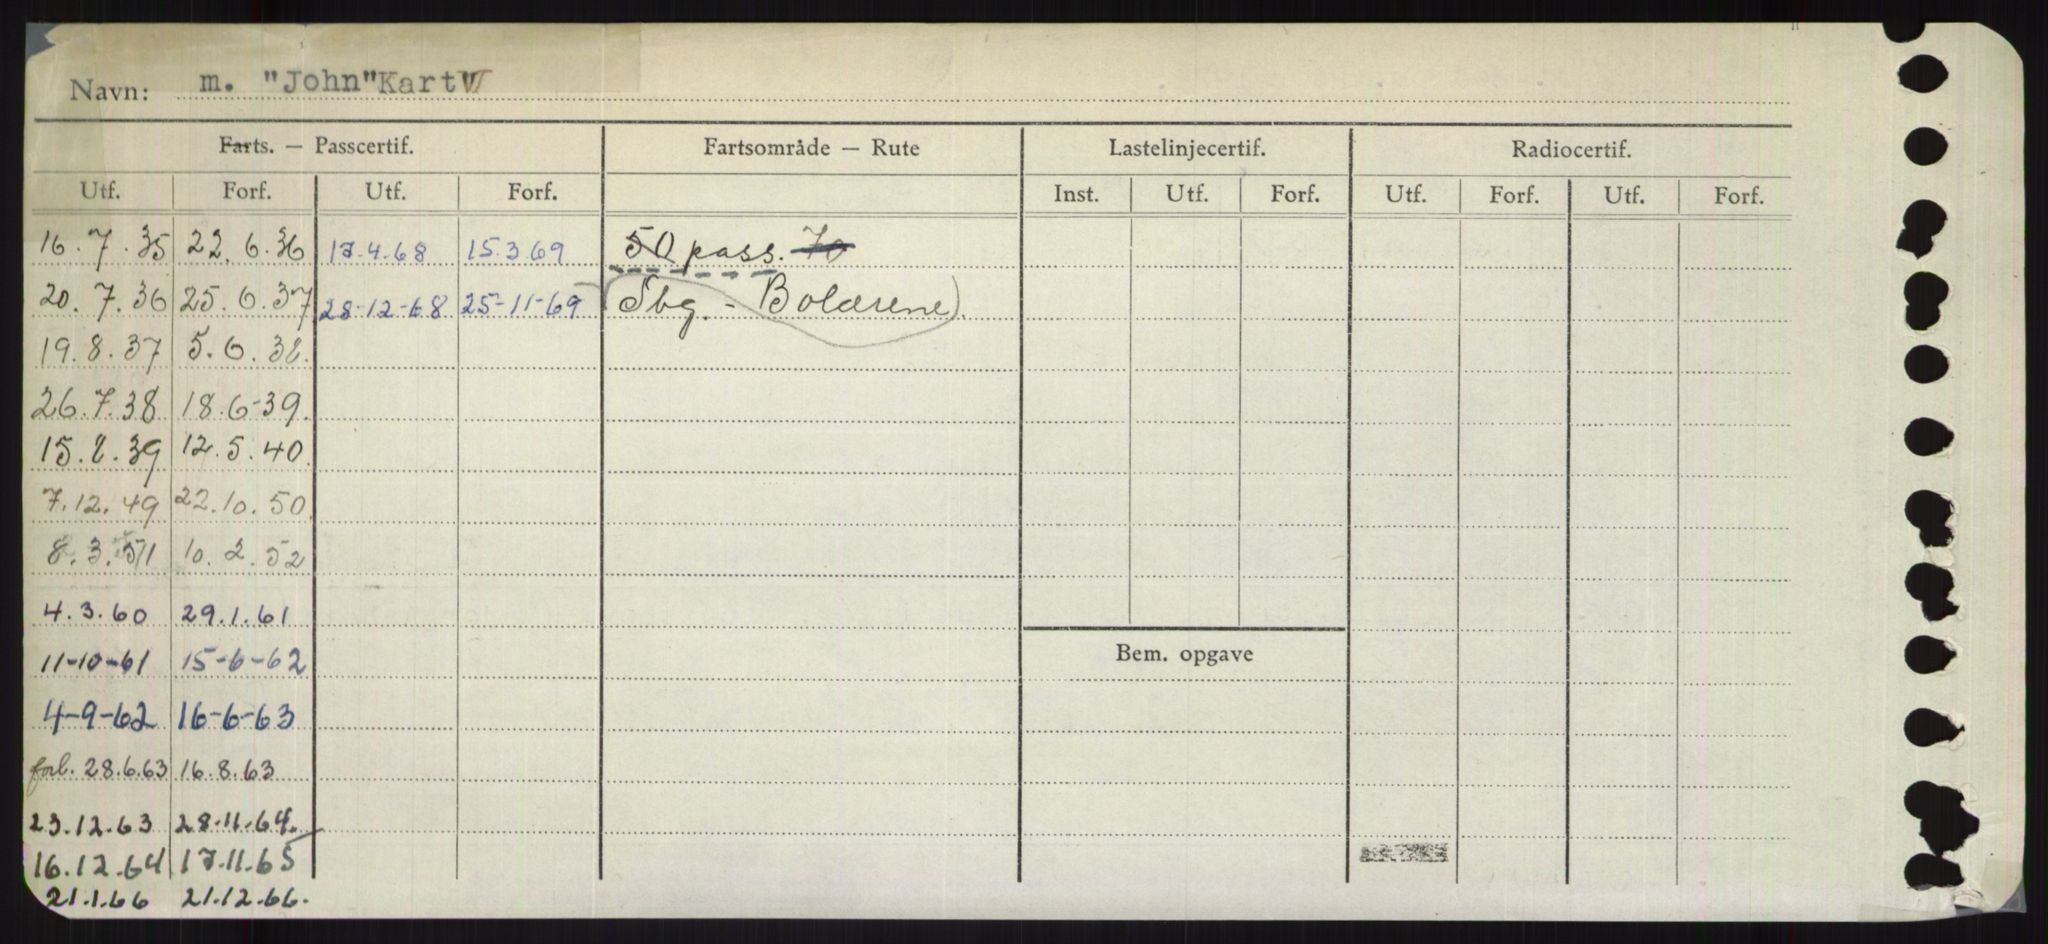 Navn: m. "John" Kart VI
Farts. — Passcertif. Fartsområde — Rute Lastelinjecertif. Radiocertif.
Utf. Forf. Utf. Forf. Inst. Utf. Forf. Utf. Forf. Utf. Forf.
16.7.35 22.6.36 17.4.68 15.3.69 50 pass. 70
20.7.36 25.6.37 28-12-68 25-11-69 (Sbg. - Bolærene)
19.8.37 5.6.38.
26.7.38 18.6-39.
15.8.39 12.5.40.
7.12.49 22.10.50.
8.3.51 10.2.52
4.3.60 29.1.61
11-10-61 15-6-62
Bem. opgave
4-9-62 16-6-63
forl. 28.6.63 16.8.63
23.12.63 28.11.64.
16.12.64 17.11.65
21.1.66 21.12.66.